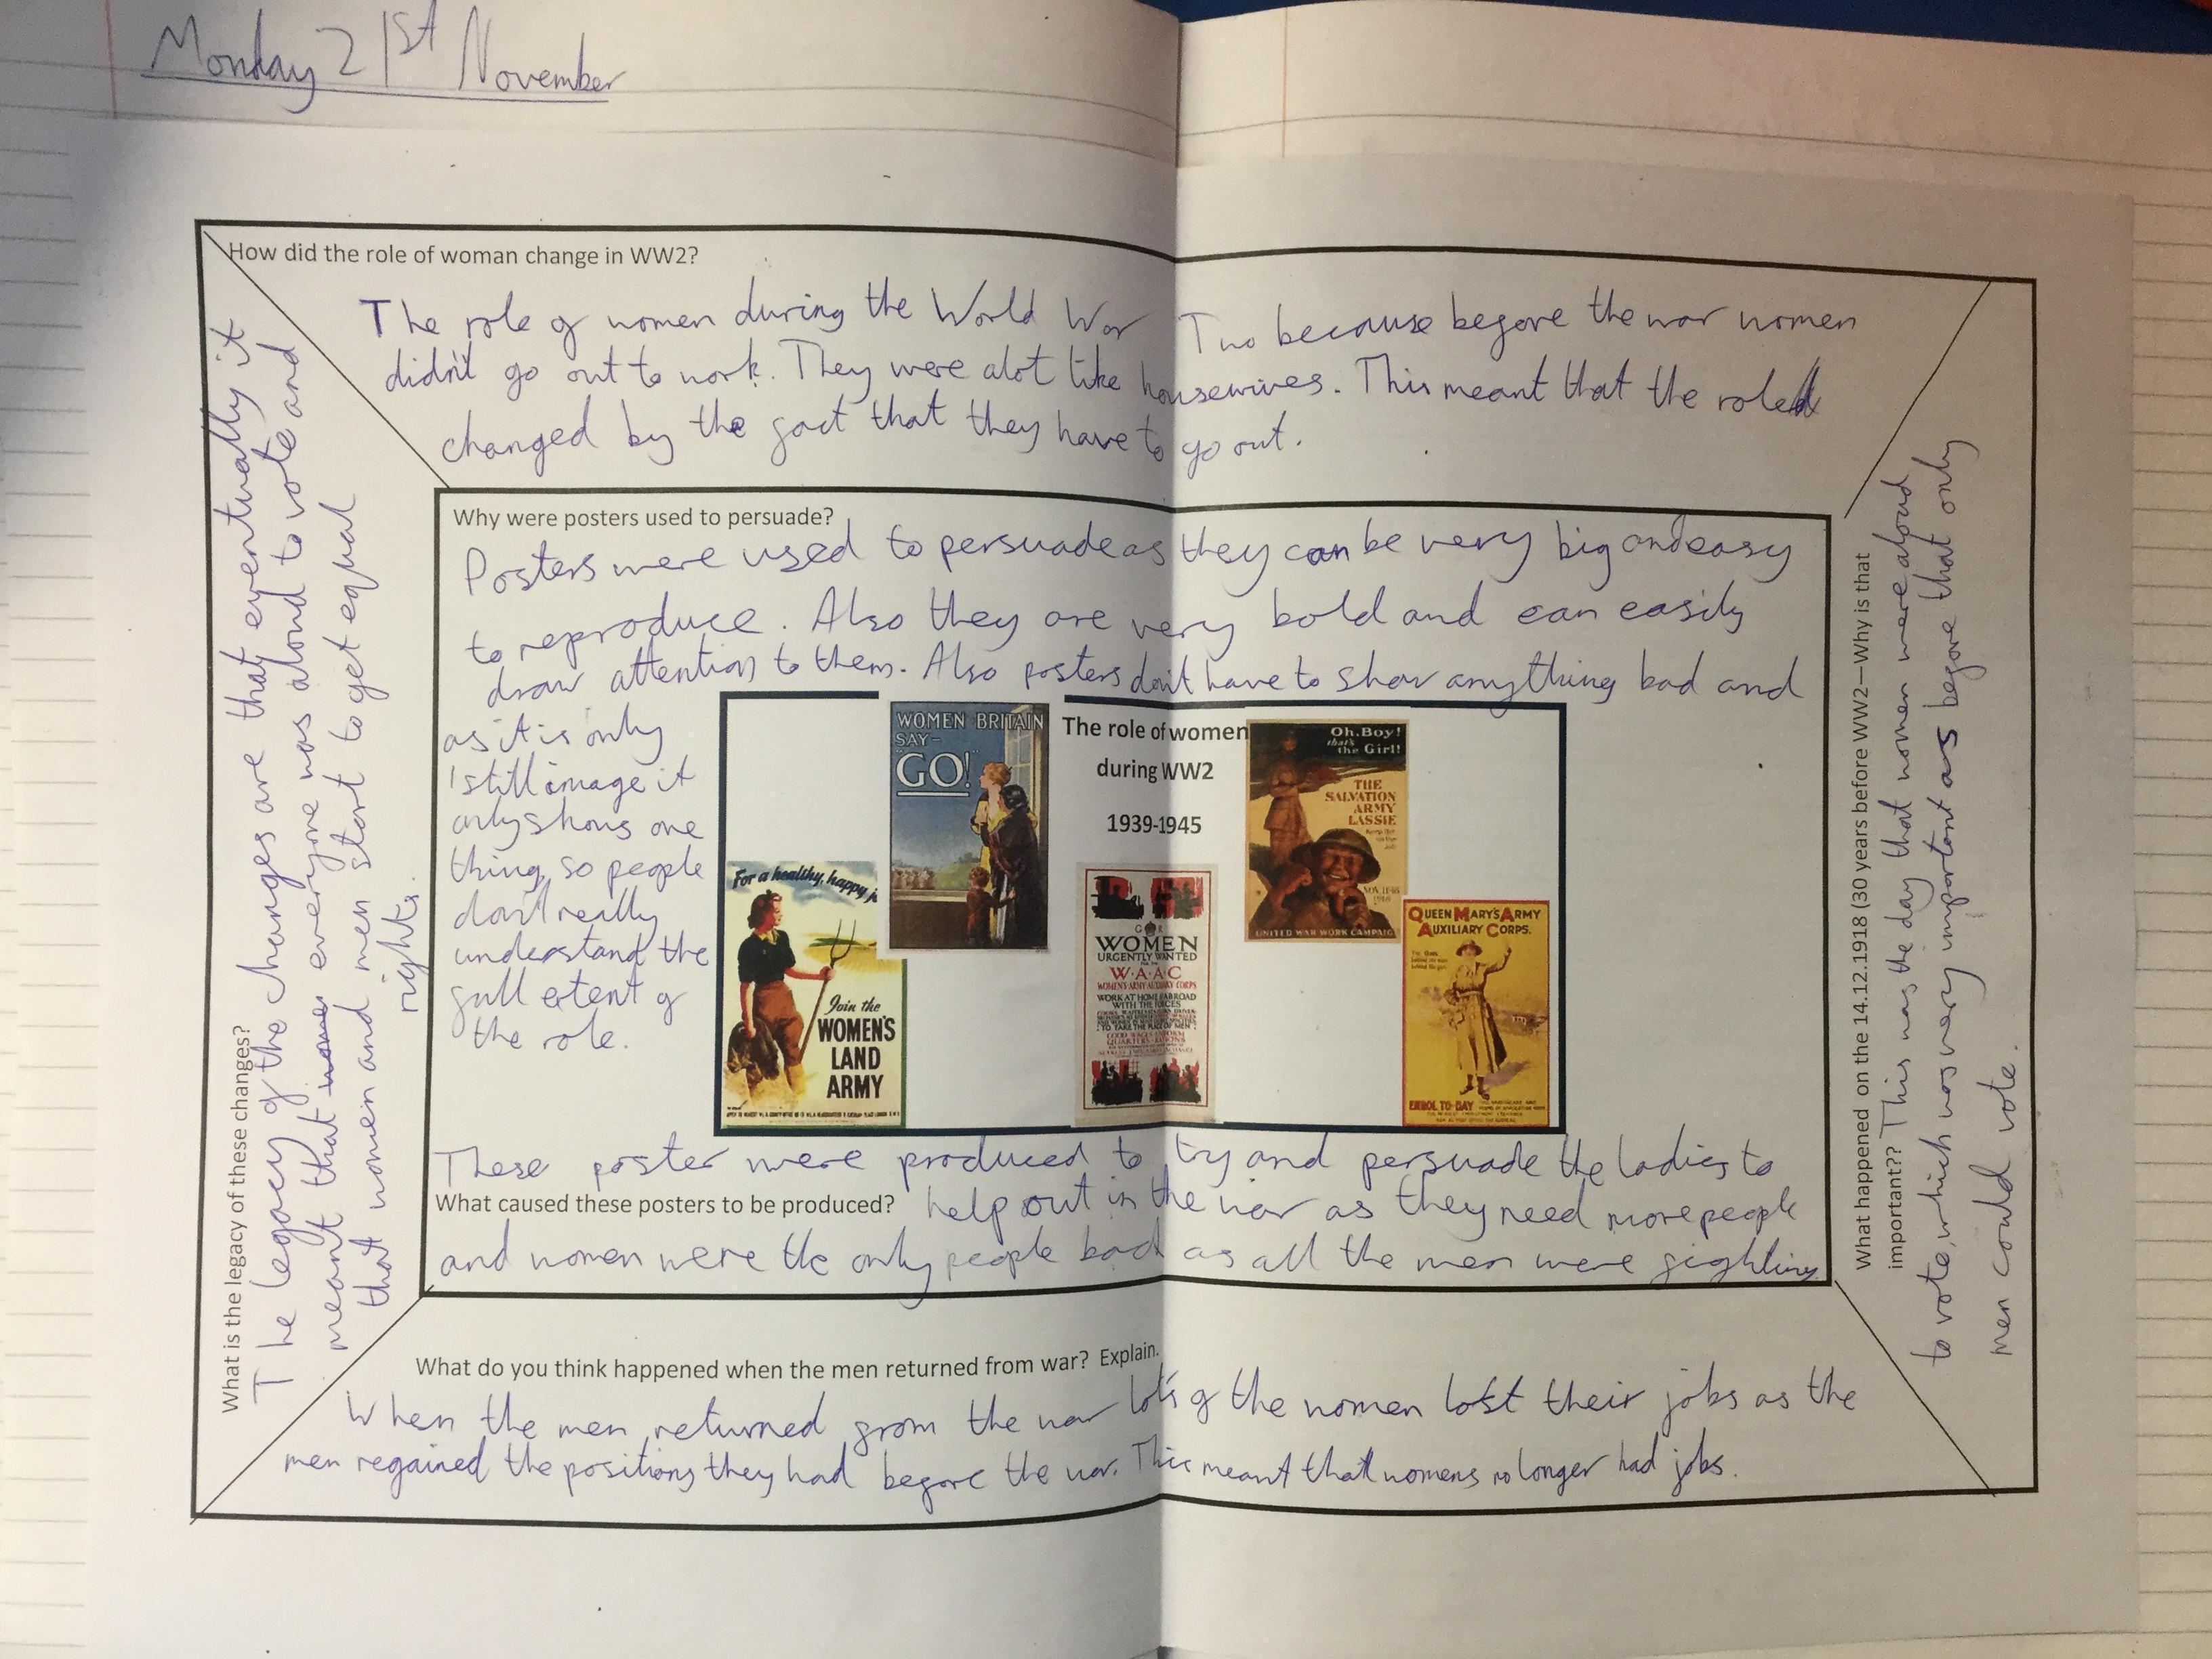 Monday 21st November
How did the role of woman change in WW2?
The role of women during the World War Two because before the war women
didn't go out to work. They were alot like housewives. This meant that the role
changed by the fact that they have to go out.
Why were posters used to persuade?
Posters were used to persuade as they can be very big and easy
to reproduce. Also they are very bold and can easily
draw attention to them. Also posters don't have to show anything bad and
as it is only
1 still image it
only shows one
thing, so people
don't really
understand the
full extent of
the role.
The role of women
during WW2
1939-1945
WOMEN BRITAIN
SAY-
"GO!"
Oh, Boy!
that's
the Girl!
THE
SALVATION
ARMY
LASSIE
NOV. 11-18
1918
UNITED WAR WORK CAMPAIG
For a healthy, happy j
Join the
WOMEN'S
LAND
ARMY
G R
WOMEN
URGENTLY WANTED
FOR THE
W·A·A·C
WOMEN'S ARMY AUXILIARY CORPS
WORK AT HOME & ABROAD
WITH THE FORCES
TO TAKE THE PLACE OF MEN
QUEEN MARY'S ARMY
AUXILIARY CORPS.
The Girl
behind the man
behind the gun.
ENROL TO-DAY
These poster were produced to try and persuade the ladies to
What caused these posters to be produced? help out in the war as they need more people
and women were the only people bad as all the men were fighting
What do you think happened when the men returned from war? Explain.
When the men returned from the war lots of the women lost their jobs as the
men regained the positions they had before the war. This meant that womens no longer had jobs.
What is the legacy of these changes?
The legacy of the changes are that eventually it
meant that everyone was alowd to vote and
that women and men start to get equal
rights.
What happened on the 14.12.1918 (30 years before WW2—Why is that
important?? This was the day that women were alowd
to vote, which was very important as before that only
men could vote.